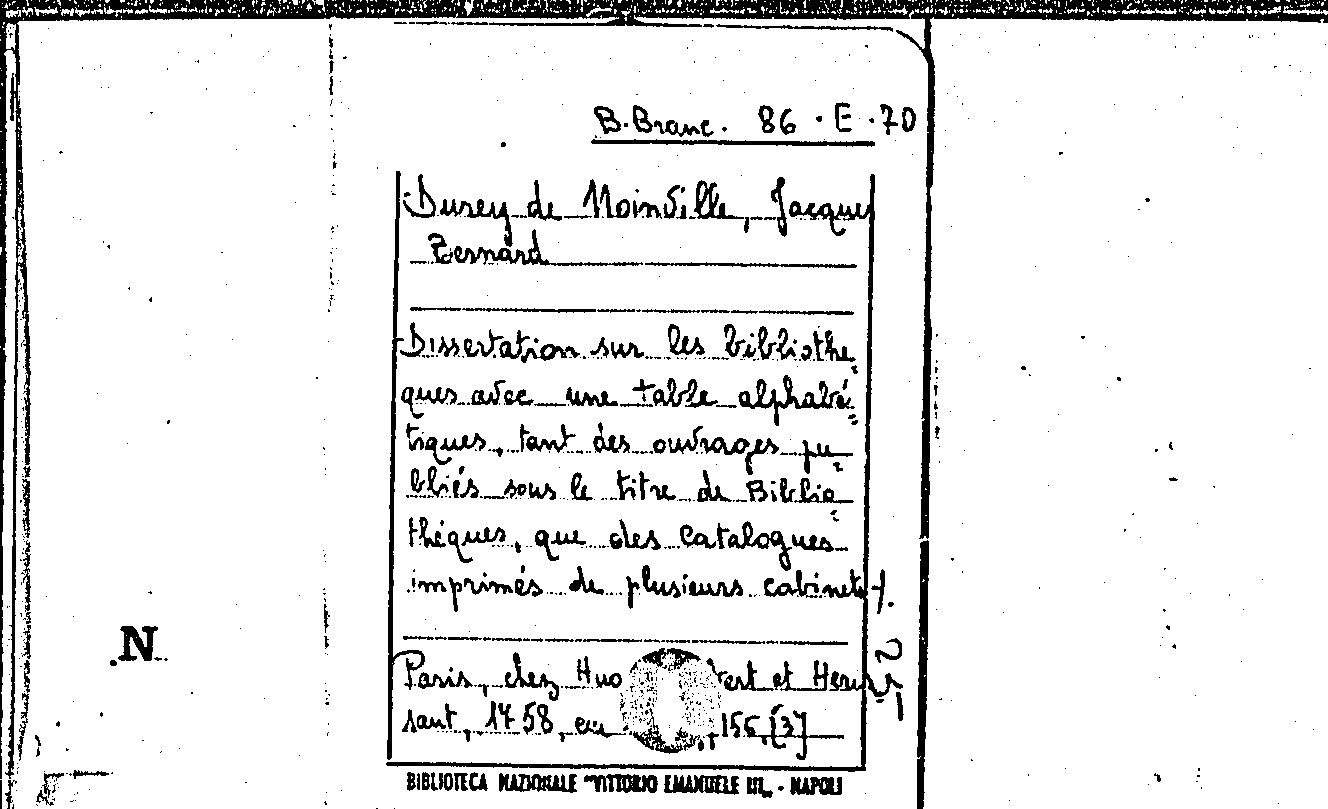 B. Branc. 86 . E . 70
Durey de Noinville, Jacques
Bernard
Dissertation sur les bibliothe=
ques avec une table alphabé=
tiques, tant des ouvrages pu=
bliés sous le titre de Biblio=
théques, que des catalogues
imprimés de plusieurs cabinets
Paris, chez et Heris
sant, 1758, 156, [3]
.N
BIBLIOTECA NAZIONALE "VITTORIO EMANUELE III„ - NAPOLI